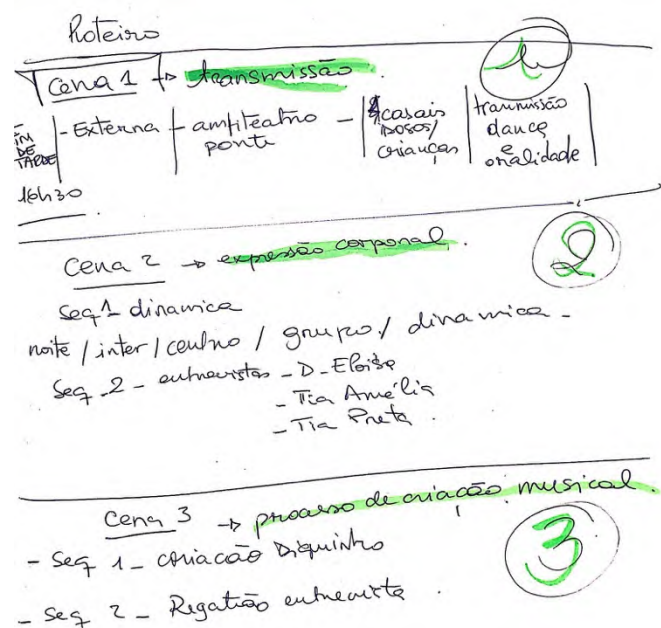 Roteiro
Cena 1 → transmissão. 1
FIM DE TARDE | - Externa - anfiteatro ponte - | 4 casais idosos / crianças | transmissão dança e oralidade |
16h30
Cena 2 → expressão corporal. 2
Seq 1 dinamica
noite / inter / centro / grupo / dinamica -
Seq. 2 - entrevistas - D. Eloisa
- Tia Amélia
- Tia Preta.
Cena 3 → processo de criação musical. 3
- Seq 1 - criação Diquinho
- Seq 2 - Regatão entrevista.